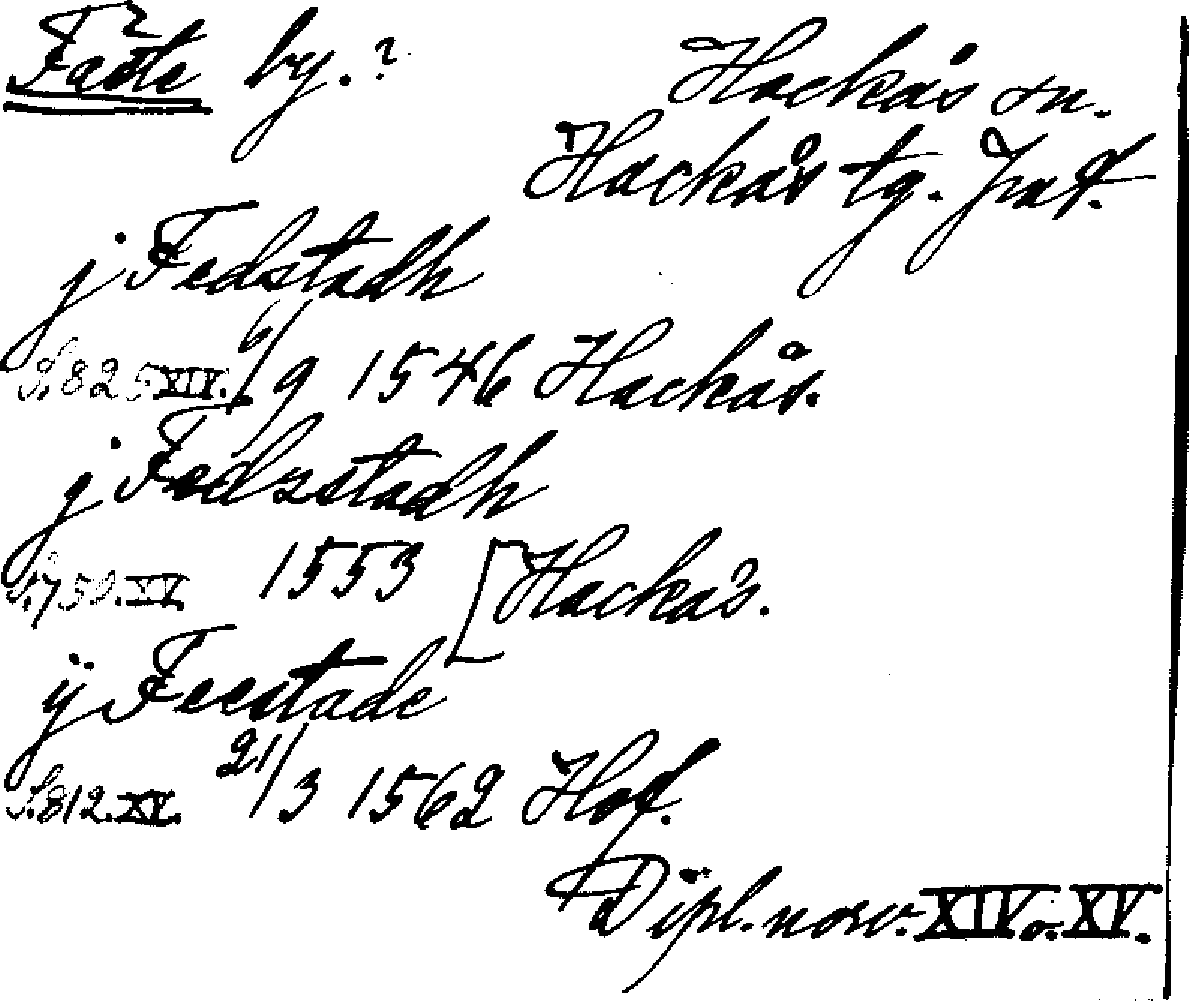 Fäste by.?
Hackås sn.
Hackås tg. Jmt.
j Fedstadh
S. 825 XIV. 6/9 1546 Hackås.
j Fedzstadh
S. 750. XV. 1553 [Hackås.
ij Feestade
S. 812. XV. 21/3 1562 Hof.
Dipl. norv. XIV o. XV.